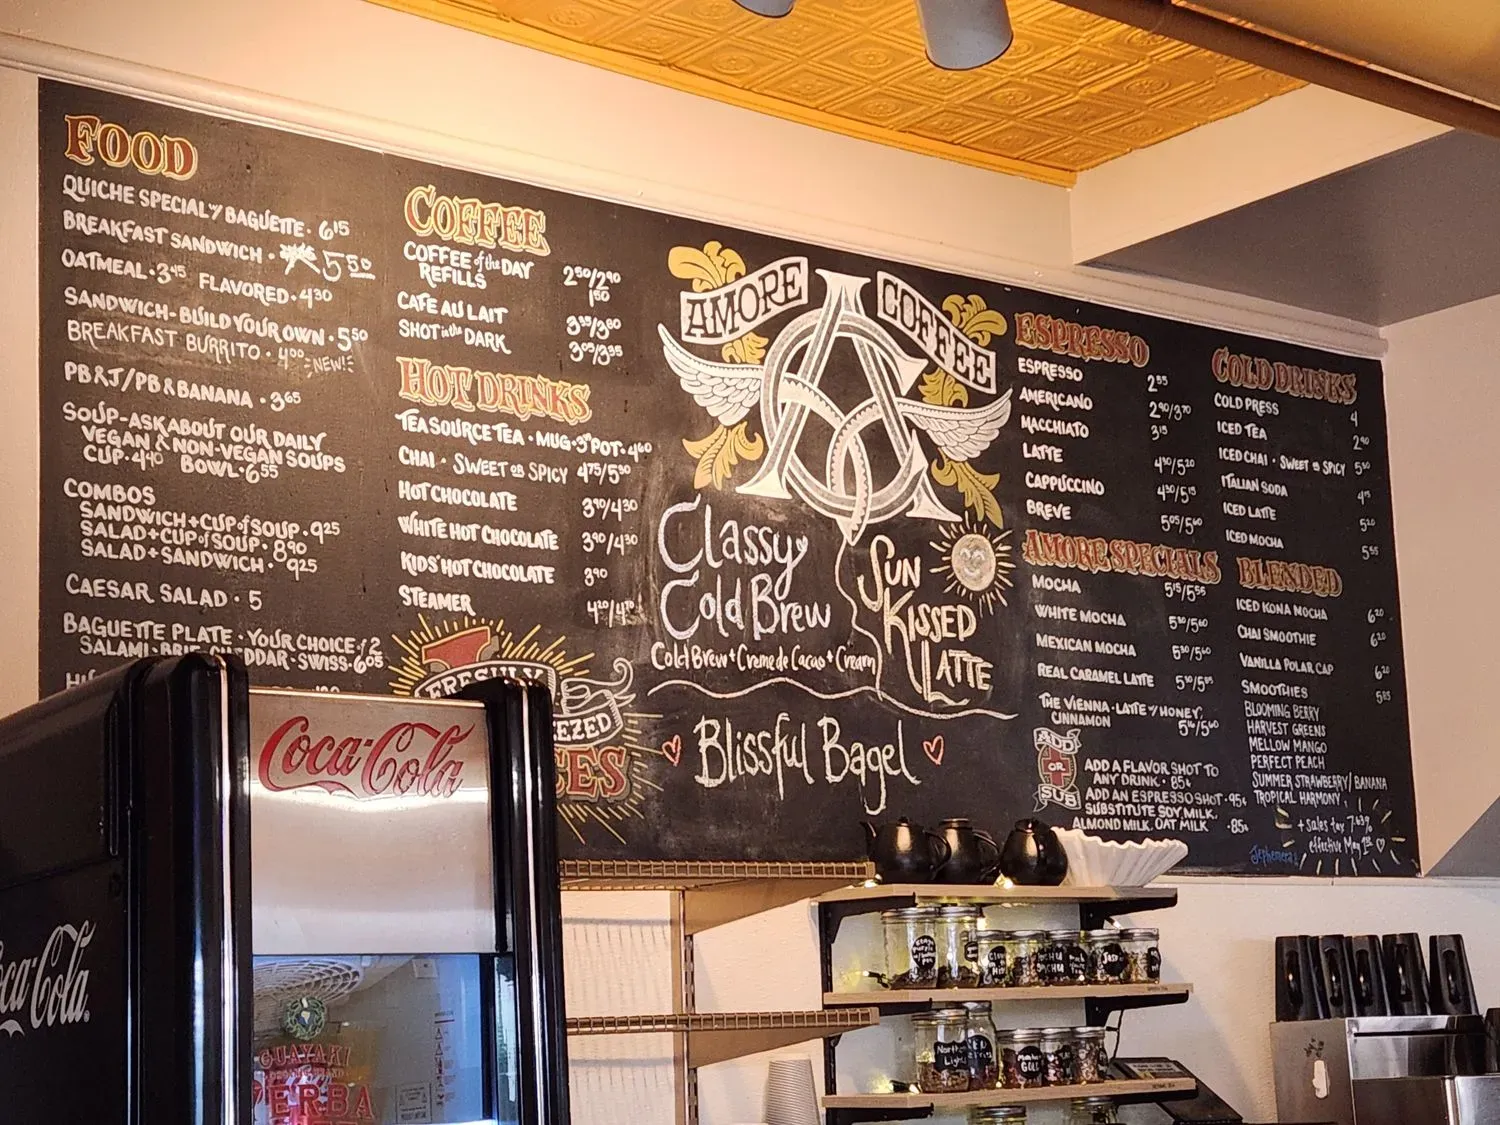 FOOD
QUICHE SPECIAL W/ BAGUETTE · 6 15
BREAKFAST SANDWICH · 5 50
OATMEAL · 3 45 FLAVORED · 4 30
SANDWICH - BUILD YOUR OWN · 5 50
BREAKFAST BURRITO · 4 00 NEW!
PB&J/PB & BANANA · 3 65
SOUP - ASK ABOUT OUR DAILY
VEGAN & NON-VEGAN SOUPS
CUP · 4 40 BOWL · 6 55
COMBOS
SANDWICH + CUP of SOUP · 9 25
SALAD + CUP of SOUP · 8 90
SALAD + SANDWICH · 9 25
CAESAR SALAD · 5
BAGUETTE PLATE · YOUR CHOICE of 2
SALAMI · BRIE · CHEDDAR · SWISS · 6 05
COFFEE
COFFEE of the DAY 2 50/2 90
REFILLS 1 50
CAFE AU LAIT 3 35/3 80
SHOT in the DARK 3 05/3 35
HOT DRINKS
TEASOURCE TEA · MUG · POT · 4 60
CHAI · SWEET OR SPICY 4 75/5 30
HOT CHOCOLATE 3 90/4 30
WHITE HOT CHOCOLATE 3 90/4 30
KIDS' HOT CHOCOLATE 3 90
STEAMER
1
FRESHLY
AMORE COFFEE
AC
Classy
Cold Brew
Cold Brew + Creme de Cacao + Cream
SUN
KISSED
LATTE
Blissful Bagel
ESPRESSO
ESPRESSO 2 55
AMERICANO 2 90/3 70
MACCHIATO 3 15
LATTE 4 30/5 20
CAPPUCCINO 4 30/5 15
BREVE 5 05/5 60
AMORE SPECIALS
MOCHA 5 15/5 55
WHITE MOCHA
MEXICAN MOCHA
REAL CARAMEL LATTE
THE VIENNA · LATTE W/ HONEY,
CINNAMON
ADD
OR
SUB
ADD A FLAVOR SHOT TO
ANY DRINK · 85¢
ADD AN ESPRESSO SHOT · 95¢
SUBSTITUTE SOY MILK,
ALMOND MILK, OAT MILK · 85¢
COLD DRINKS
COLD PRESS 4
ICED TEA 2 90
ICED CHAI · SWEET OR SPICY 5 50
ITALIAN SODA
ICED LATTE 5 20
ICED MOCHA 5 55
BLENDED
ICED KONA MOCHA 6 20
CHAI SMOOTHIE 6 20
VANILLA POLAR CAP 6 20
SMOOTHIES
BLOOMING BERRY
HARVEST GREENS
MELLOW MANGO
PERFECT PEACH
SUMMER STRAWBERRY/BANANA
TROPICAL HARMONY
+ sales tax
effective May 1st
Coca-Cola
Coca-Cola
GUAYAKI
YERBA